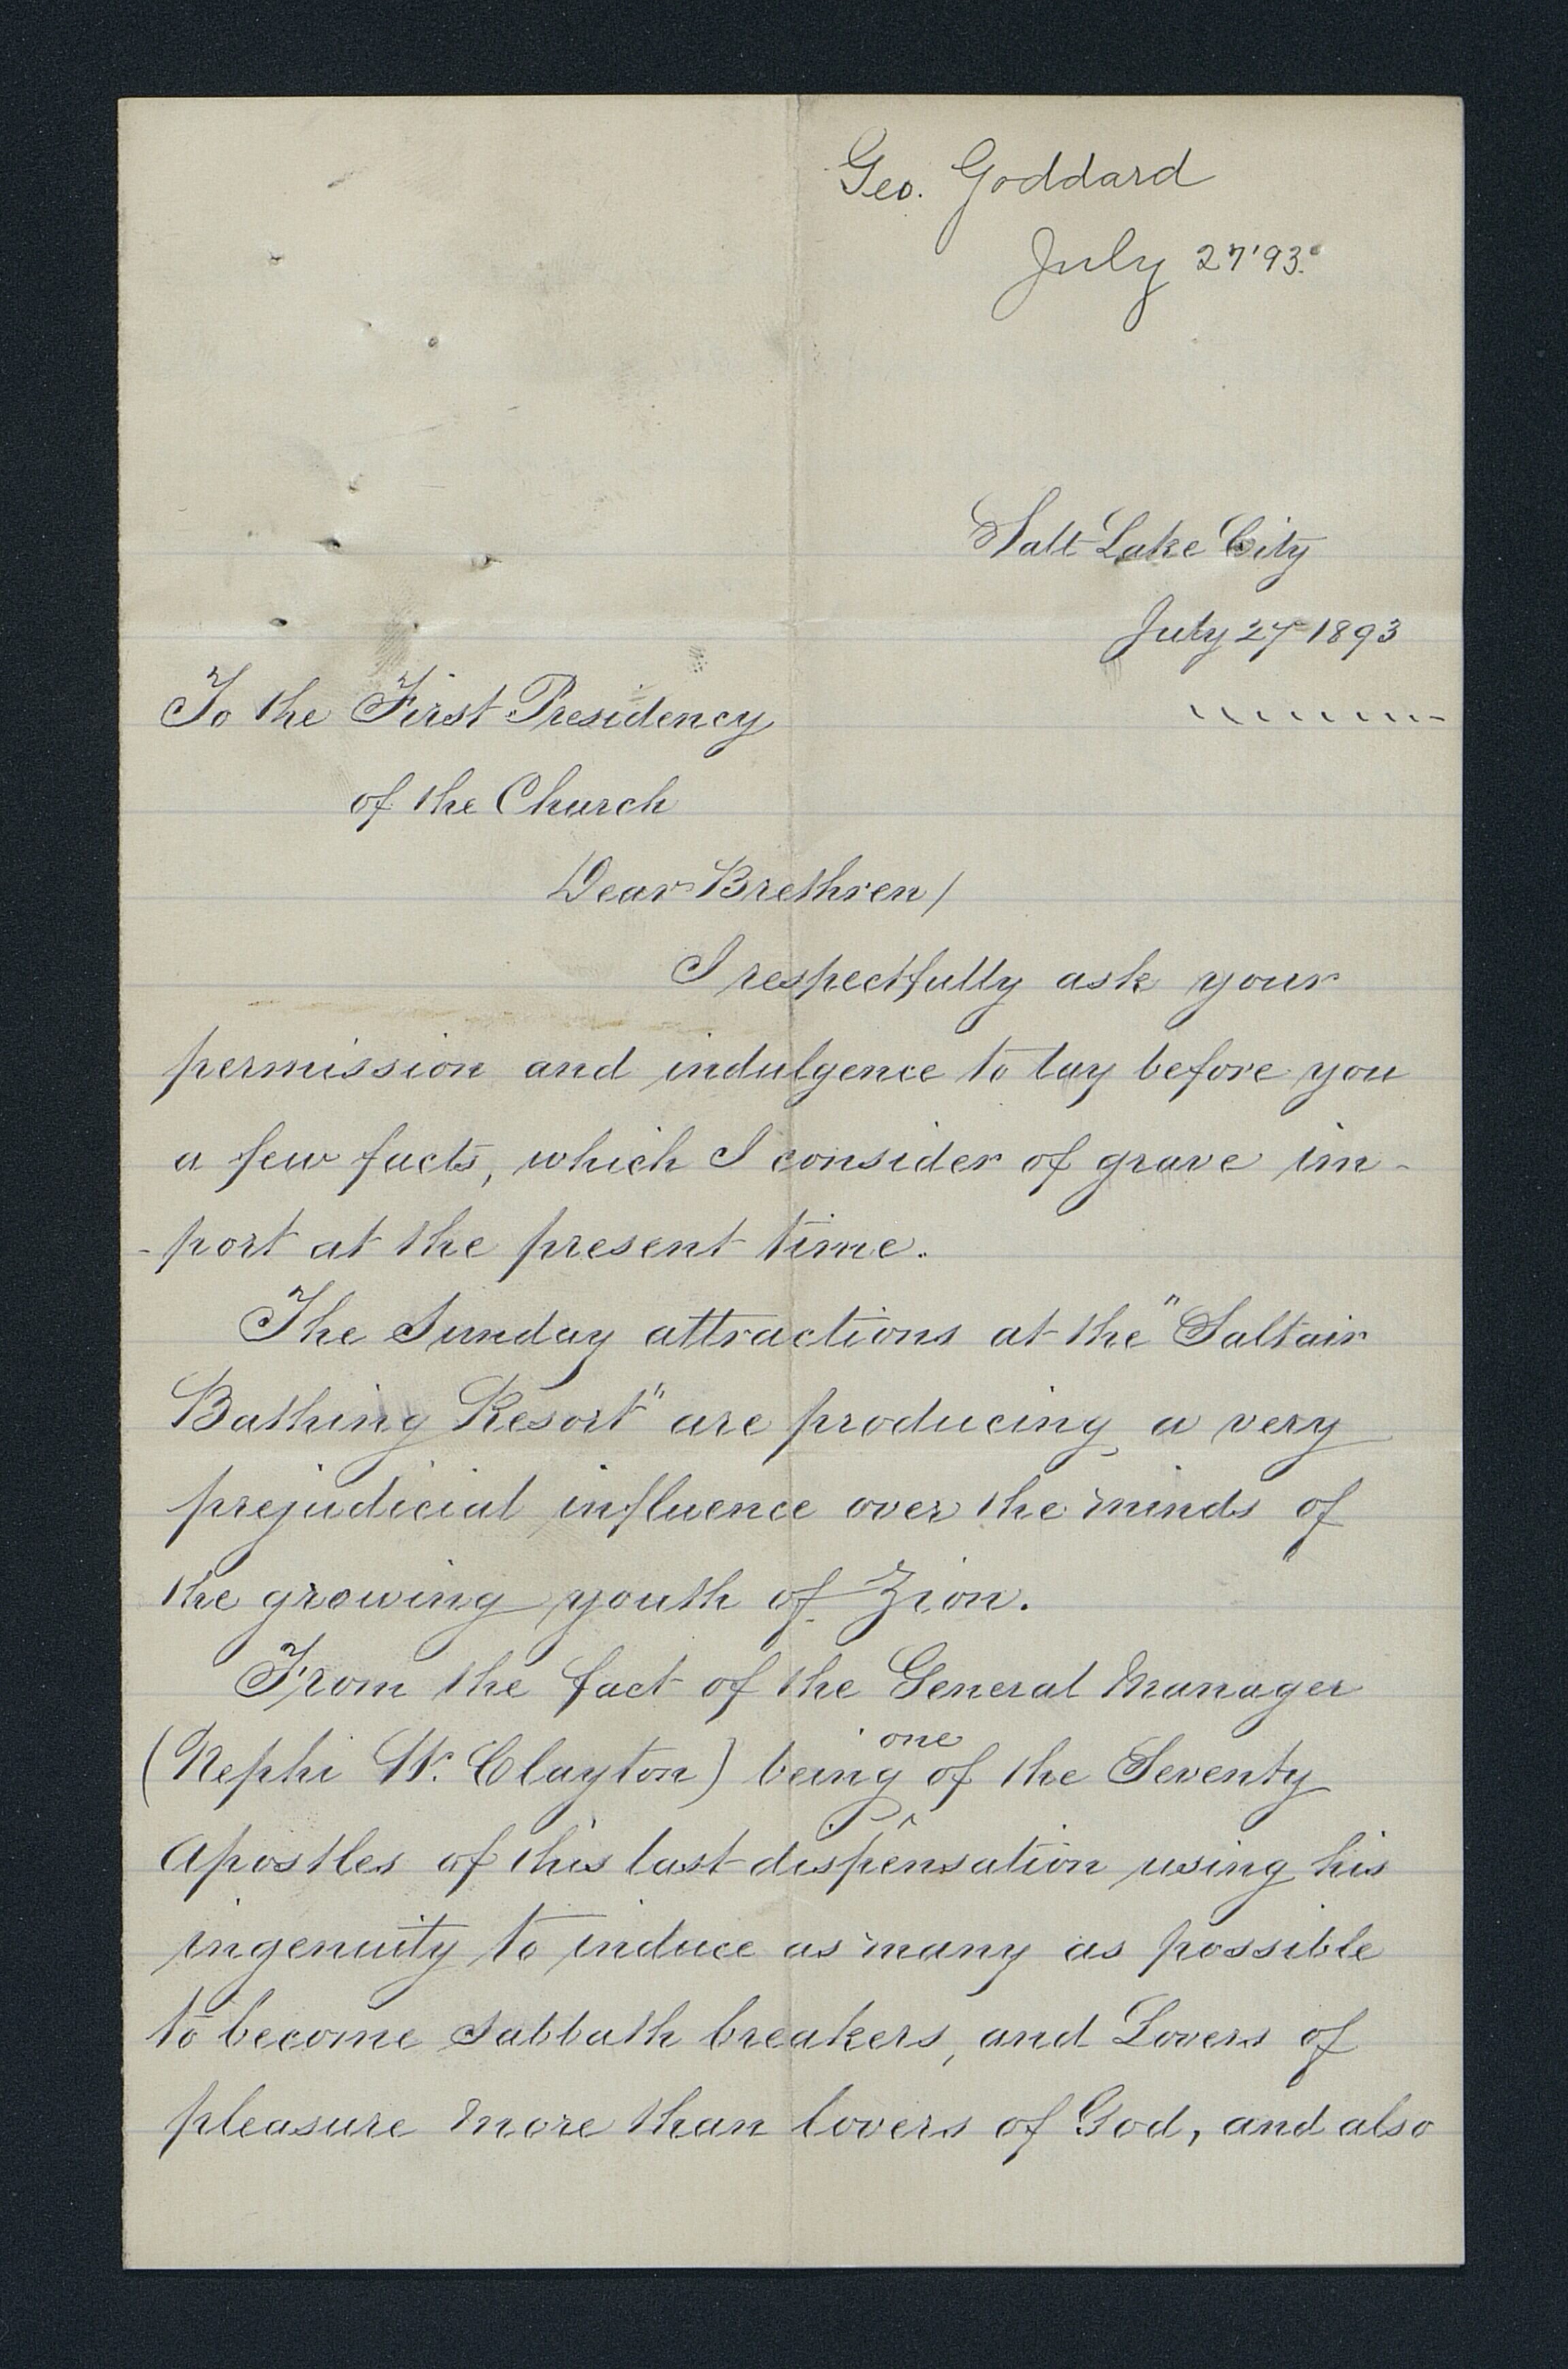 Geo. Goddard
July 27 '93.
Salt Lake City
July 27 1893
To the First Presidency
of the Church
Dear Brethren/
I respectfully ask your
permission and indulgence to lay before you
a few facts, which I consider of grave im-
-port at the present time.
The Sunday attractions at the "Saltair
Bathing Resort" are producing a very
prejudicial influence over the minds of
the growing youth of Zion.
From the fact of the General Manager
(Nephi W. Clayton) being ^one of the Seventy
Apostles of this last dispensation using his
ingenuity to induce as many as possible
to become sabbath breakers, and Lovers of
pleasure more than lovers of God, and also